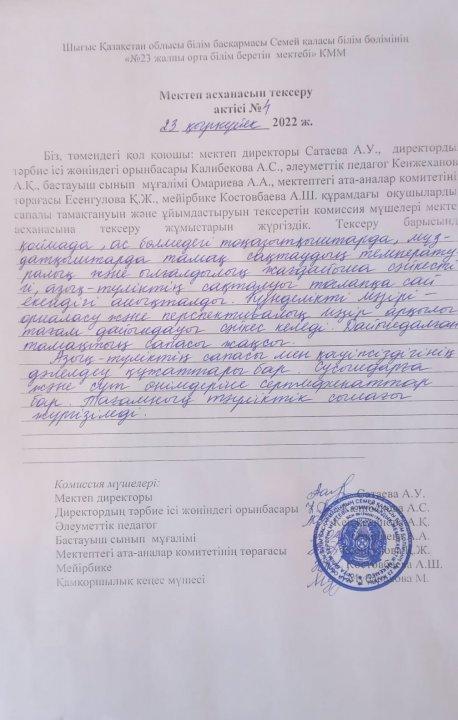 Шығыс Қазақстан облысы білім басқармасы Семей қаласы білім бөлімінің
«№23 жалпы орта білім беретін мектебі» КММ
Мектеп асханасын тексеру
актісі №4
23 қыркүйек 2022 ж.
Біз, төмендегі қол қоюшы: мектеп директоры Сатаева А.У., директорды
тәрбие ісі жөніндегі орынбасары Калибекова А.С., әлеуметтік педагог Кенжеханов
А.Қ., бастауыш сынып мұғалімі Омариева А.А., мектептегі ата-аналар комитетіні
төрағасы Есенгулова Қ.Ж., мейірбике Костовбаева А.Ш. құрамдағы оқушыларды
сапалы тамақтануын және ұйымдастыруын тексеретін комиссия мүшелері мекте
асханасына тексеру жұмыстарын жүргіздік. Тексеру барысынд
қоймада, ас бөлмедегі тоңазытқыштарда, мұз-
датқыштарда тамақ сақтаудың температу
ралық және ылғалдылық жағдайына сәйкесті
гі, азық-түліктің сақталуы талапқа сай
екендігі анықталды. Күнделікті мәзірі -
орналасу және перспективалық мәзір арқылы
тағам дайындауы сәйкес келеді. Дайындалған
тамақтың сапасы жақсы.
Азық-түліктің сапасы мен қауіпсіздігінің
дәлелдеу құжаттары бар. Сусындарға
және сүт өнімдеріне сертификаттар
бар. Тағамның тәуліктік сынағы
жүргізіледі.
Комиссия мүшелері:
Мектеп директоры Сатаева А.У.
Директордың тәрбие ісі жөніндегі орынбасары А.С.
Әлеуметтік педагог А.Қ.
Бастауыш сынып мұғалімі А.А.
Мектептегі ата-аналар комитетінің төрағасы Қ.Ж.
Мейірбике А.Ш.
Қамқоршылық кеңес мүшесі М.